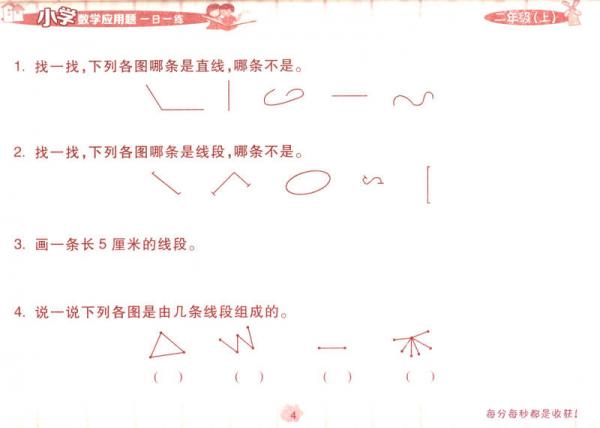 小学数学应用题一日一练
二年级(上)
1. 找一找,下列各图哪条是直线,哪条不是。
2. 找一找,下列各图哪条是线段,哪条不是。
3. 画一条长5厘米的线段。
4. 说一说下列各图是由几条线段组成的。
( ) ( ) ( ) ( )
4
每分每秒都是收获!